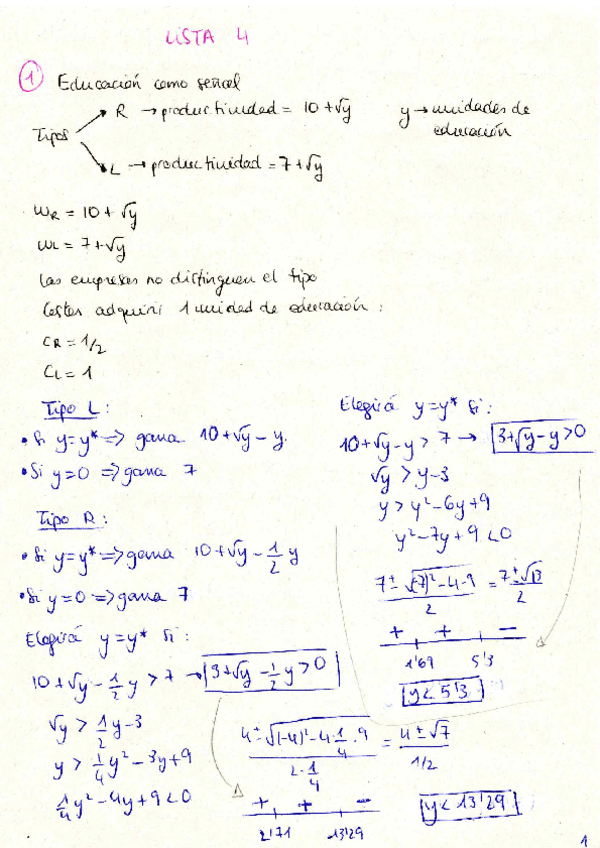 LISTA 4
1 Educación como señal
Tipos
R → productividad = 10 + √y
y → unidades de educación
L → productividad = 7 + √y
WR = 10 + √y
WL = 7 + √y
Las empresas no distinguen el tipo
Costes adquirir 1 unidad de educación:
CR = 1/2
CL = 1
Tipo L:
• Si y = y* => gana 10 + √y - y.
• Si y = 0 => gana 7
Tipo R:
• Si y = y* => gana 10 + √y - 1/2 y
• Si y = 0 => gana 7
Elegirá y = y* si:
10 + √y - 1/2 y > 7 → 3 + √y - 1/2 y > 0
√y > 1/2 y - 3
y > 1/4 y² - 3y + 9
1/4 y² - 4y + 9 < 0
Elegirá y = y* si:
10 + √y - y > 7 → 3 + √y - y > 0
√y > y - 3
y > y² - 6y + 9
y² - 7y + 9 < 0
7 ± √(-7)² - 4·9 / 2 = 7 ± √13 / 2
+ + -
1'69 5'3
y < 5'3
4 ± √(-4)² - 4·1/4·9 / 2·1/4 = 4 ± √7 / 1/2
+ + -
2'71 13'29
y < 13'29
1